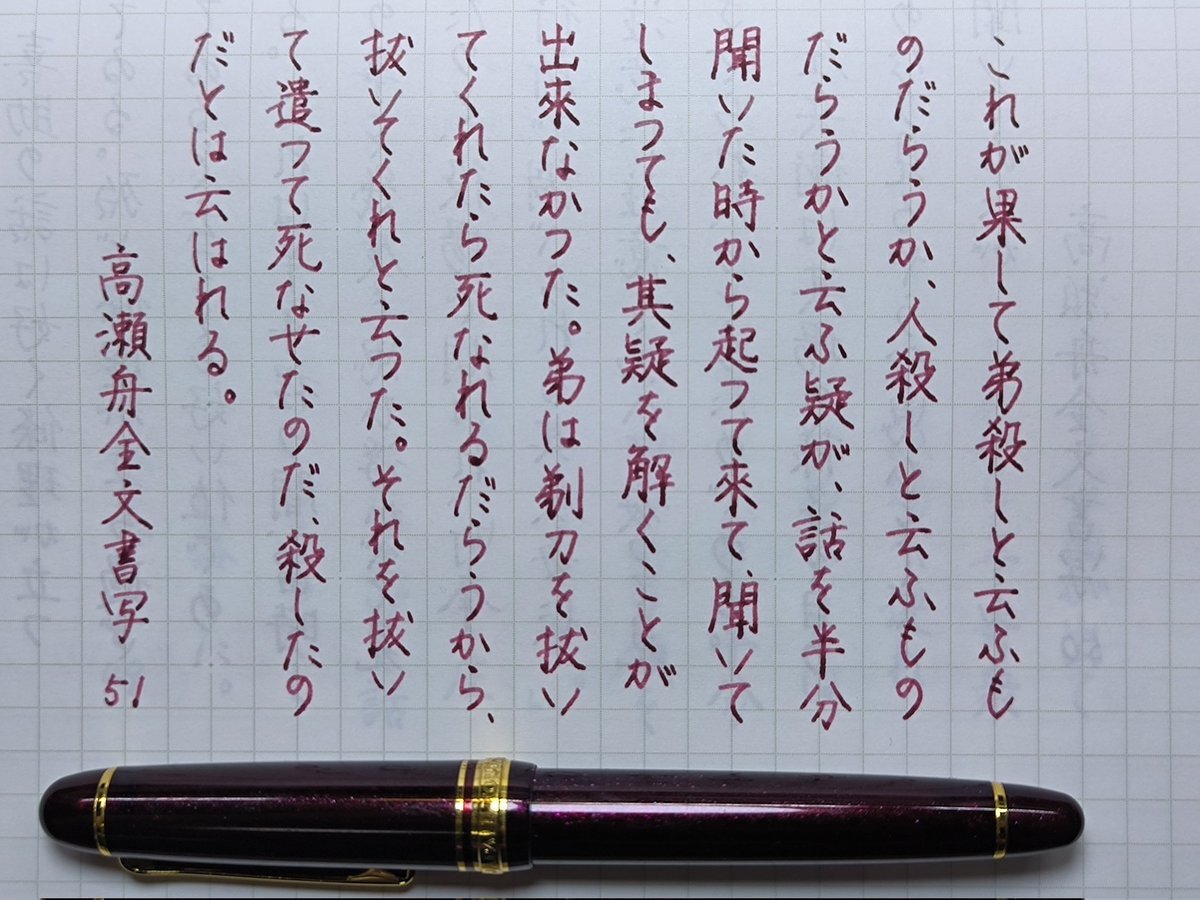 これが果して弟殺しと云ふも
のだらうか、人殺しと云ふもの
だらうかと云ふ疑が、話を半分
聞いた時から起つて来て、聞いて
しまつても、其疑を解くことが
出來なかつた。弟は剃刀を抜い
てくれたら死なれるだらうから、
抜いてくれと云つた。それを抜い
て遣つて死なせたのだ、殺したの
だとは云はれる。
高瀬舟全文書写 51